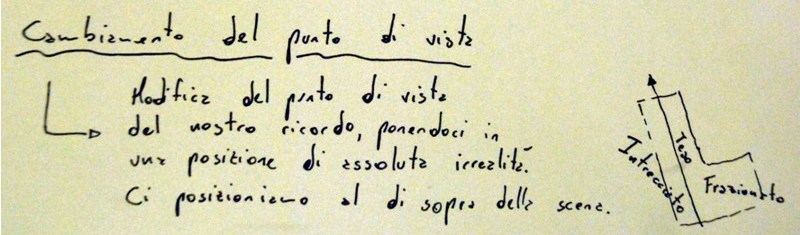 Cambiamento del punto di vista
Modifica del punto di vista
del nostro ricordo, ponendoci in
una posizione di assoluta irrealtà.
Ci posizioniamo al di sopra della scena.
Intrecciato
Teso
Frazionato